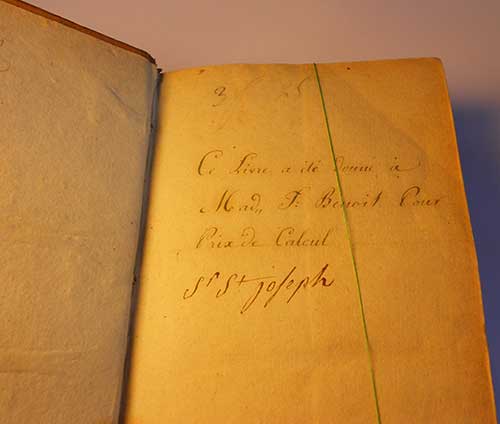 Ce Livre a été donné à
Mad,, Je Benoit Pour
Prix de Calcul
Sr St joseph